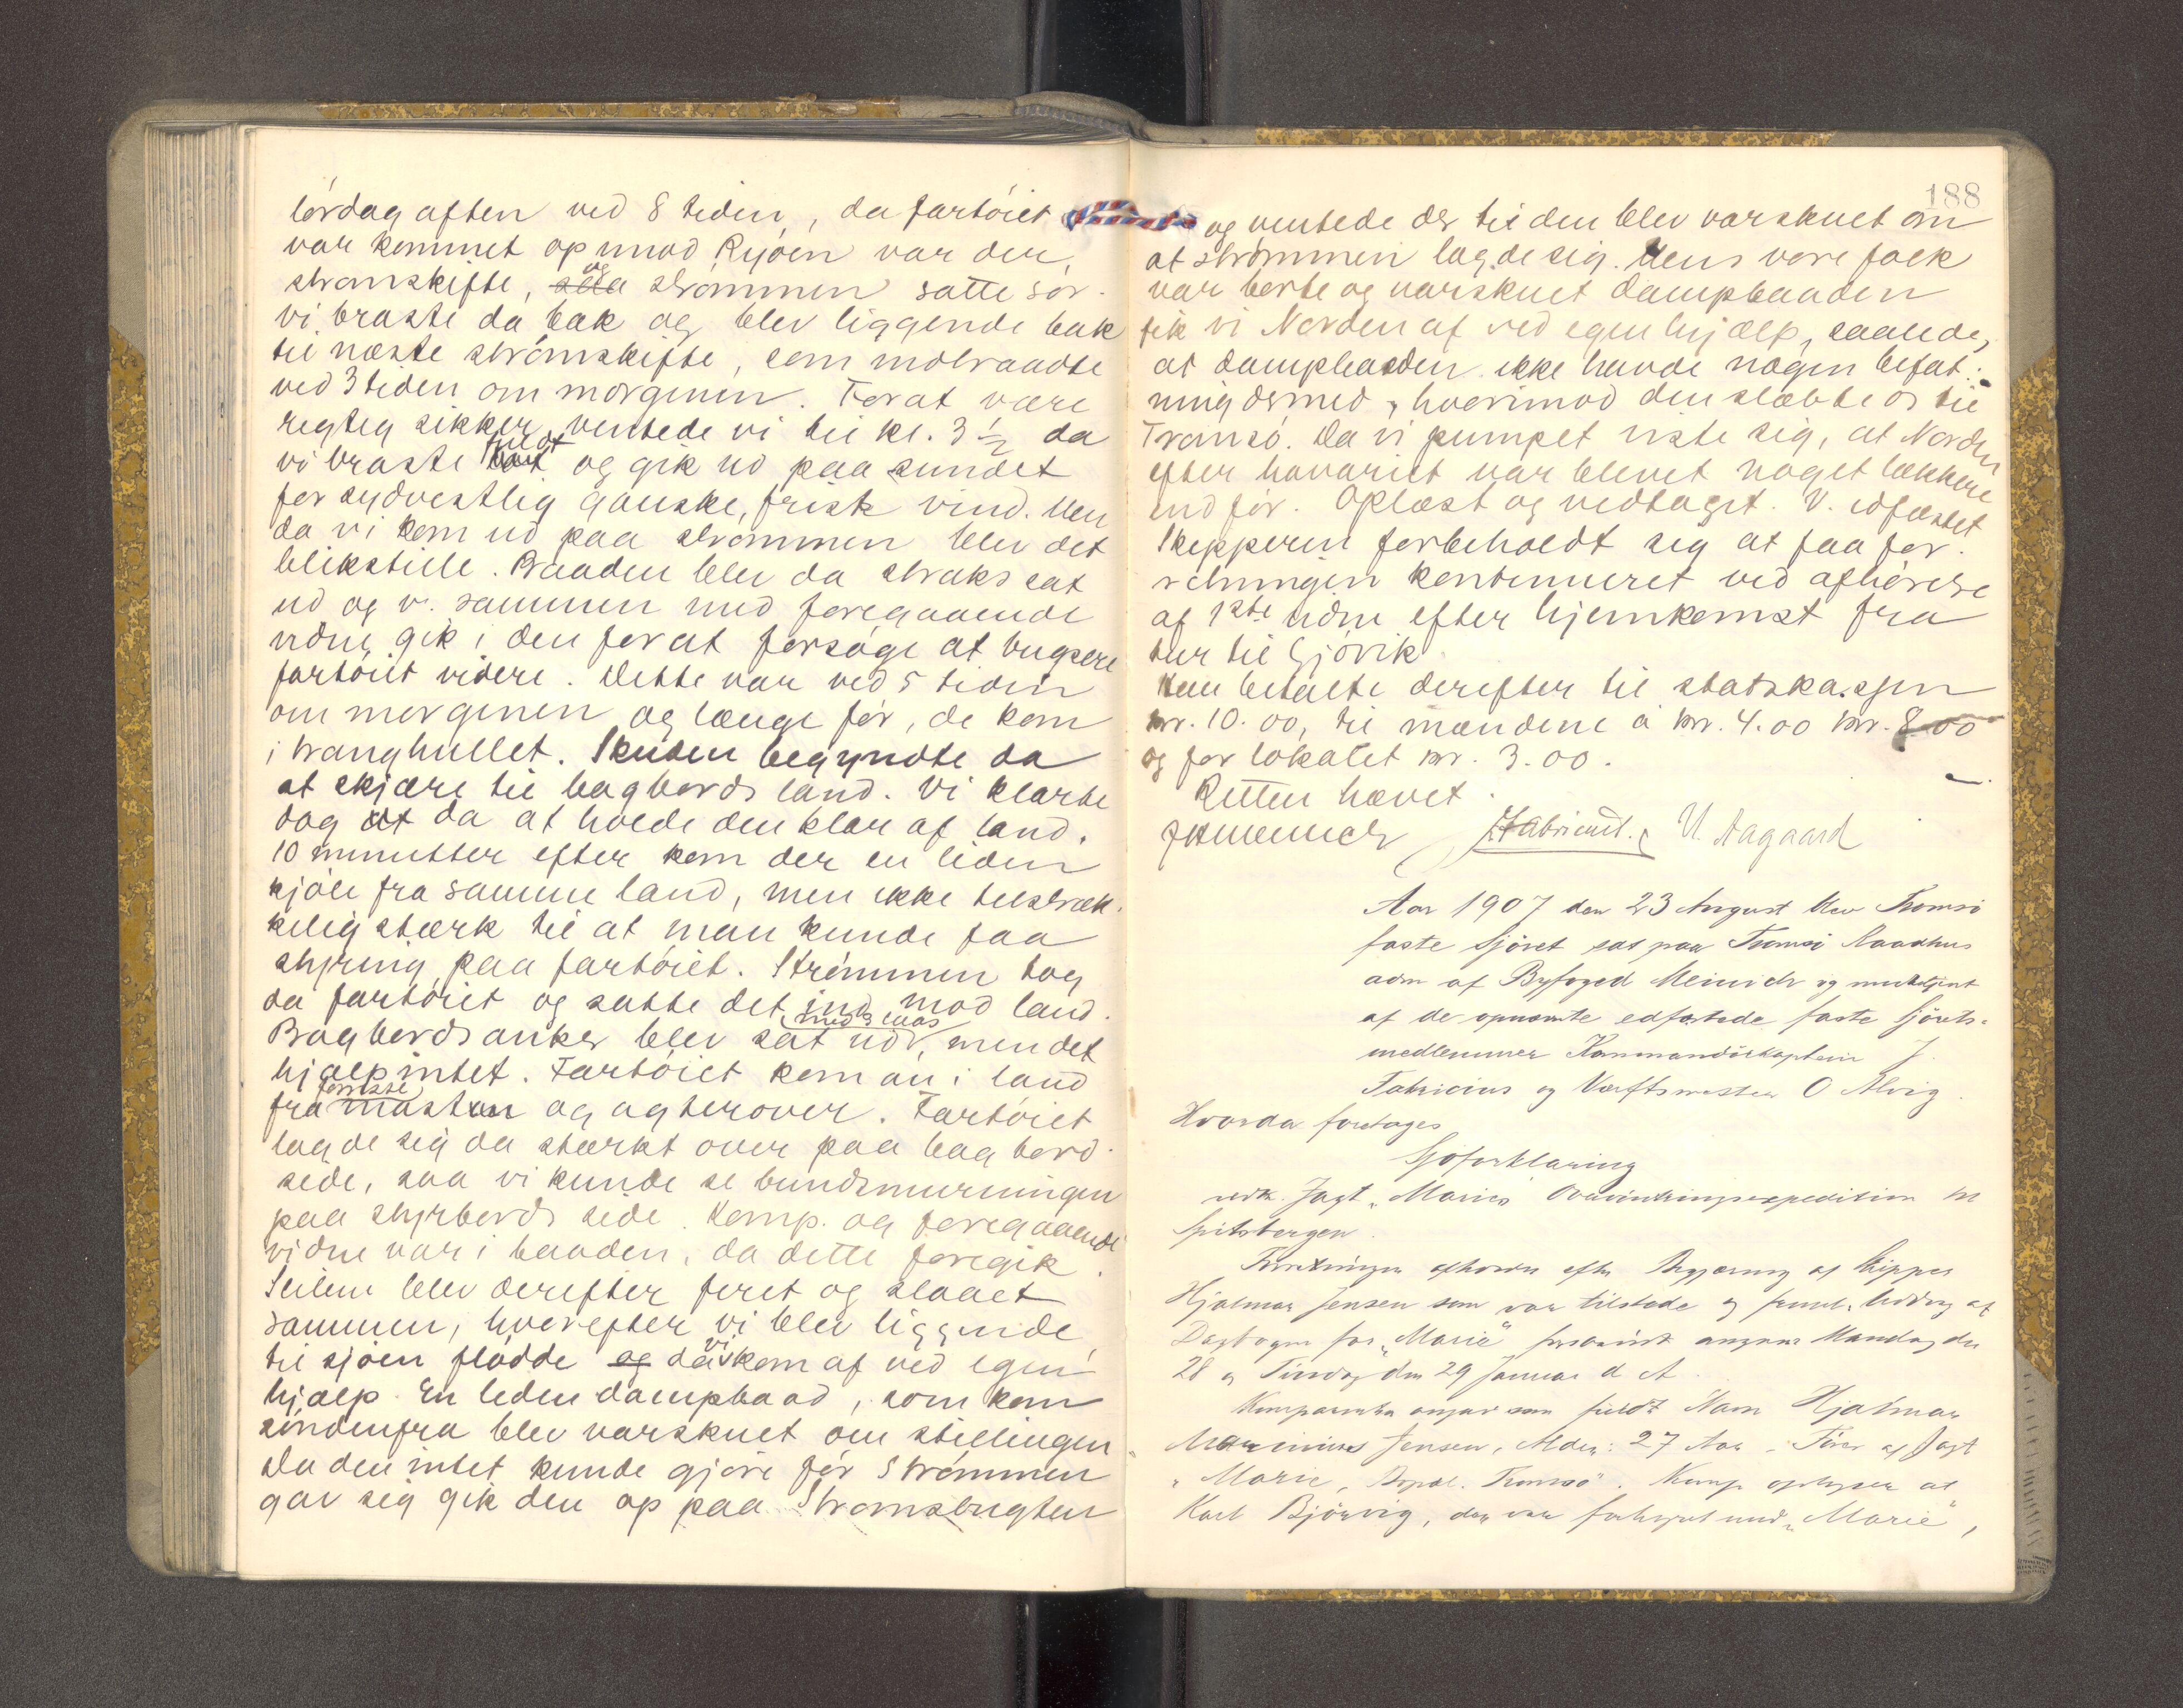 lördag aften ved 8 tiden, da fartöiet
var kommet op imod Ryöen var der
strömskifte, saa og strömmen satte sör.
vi braste da bak og blev liggende bak
til næste strömskifte, som indtraadte
ved 3 tiden om morgenen. Forat være
regtig sikker ventede vi til kl. 3 ½ da
vi braste fuldt og gik ud paa sundet
for sydvestlig ganske frisk vind. Men
da vi kom ud paa strömmen blev det
blikstille. Baaden blev da straks sat
ud og v. sammen med foregaaende
vidne gik i den forat forsöge at bugsere
fartöiet videre. Dette var ved 5 tiden
om morgenen og længe för, de kom
i tranghullet. Skuden begyndte da
at skjære til bagbords land. Vi klarte
dog at da at holde den klar af land.
10 minutter efter kom der en liden
kjöle fra samme land, men ikke tilstræk-
kelig stærk til at man kunde faa
styring paa fartöiet. Strömmen tog
da fartöiet og satte det ind mod land.
Bagbords anker blev sat ud, men det
hjalp intet. Fartöiet kom an i land
fra forreste masten og agterover. Fartöiet
lagde sig da stærkt over paa bagbord
side, saa vi kunde se
paa styrbords side. Komp. og foregaaende
vidne var i baaden, da dette foregik.
Seilene blev derefter firet og slaaet
sammen, hvorefter vi blev liggende
til sjöen flödde og da vi kom af ved egen
hjælp. En liden dampbaad, som kom
söndenfra blev varskuet om stillingen
Da den intet kunde gjöre för Strömmen
gav seg gik den op paa Strömsbugten
188
og ventede der til den blev varskuet om
at strömmen lagde sig. Mens vore folk
var borte og varskuet dampbaaden
fik vi Norden af ved egen hjælp, saaledes,
at dampbaaden ikke havde nogen befat-
ning dermed, hvorimod den slæbte os til
Tromsö. Da vi pumpet viste sig, at Norden
efter havariet var blevet noget lækkere
end för. Oplæst og vedtaget. V. edfæstet
Skipperen forbeholdt seg at faa for-
retningen kontinueret ved afhörelse
af 1ste vidne efter hjemkomst fra
tur til Gjövik
Han betalte derefter til statskassen
kr. 10.00, til mændene á kr. 4.00 kr. 8.00
og for lokalet kr. 3.00.
Retten hævet.
Fabricius. U. Aagaard
Aar 1907 den 23 August blev Tromsö
faste Sjöret sat paa Tromsö Raadhus
adm af Byfoged Meinich og meddejent
af de opnævnte edfæstede faste Sjörets-
medlemmer Kommandörkaptein J.
Fabricius og Værftsmester O Alvig.
Hvorda foretoges
Sjöforklaring
vedk. Jagt "Maries" Overvintringsexpedition til
Spitsbergen.
Forretningen afholdes efter Begjæring af Skipper
Hjalmar Jensen som var tilstede og freml. Uddrag af
Dagbogen for "Marie" angaar Mandag den
28 og Tirsdag den 29 Januar d. A.
Komparenten opgav sem fuldt Navn Hjalmar
Marinius Jensen, Alder: 27 Aar, Förer af Jagt
"Marie, Bopæl. Tromsö". Komp oplyser at
Karl Björvig, der var forhyret med "Marie",